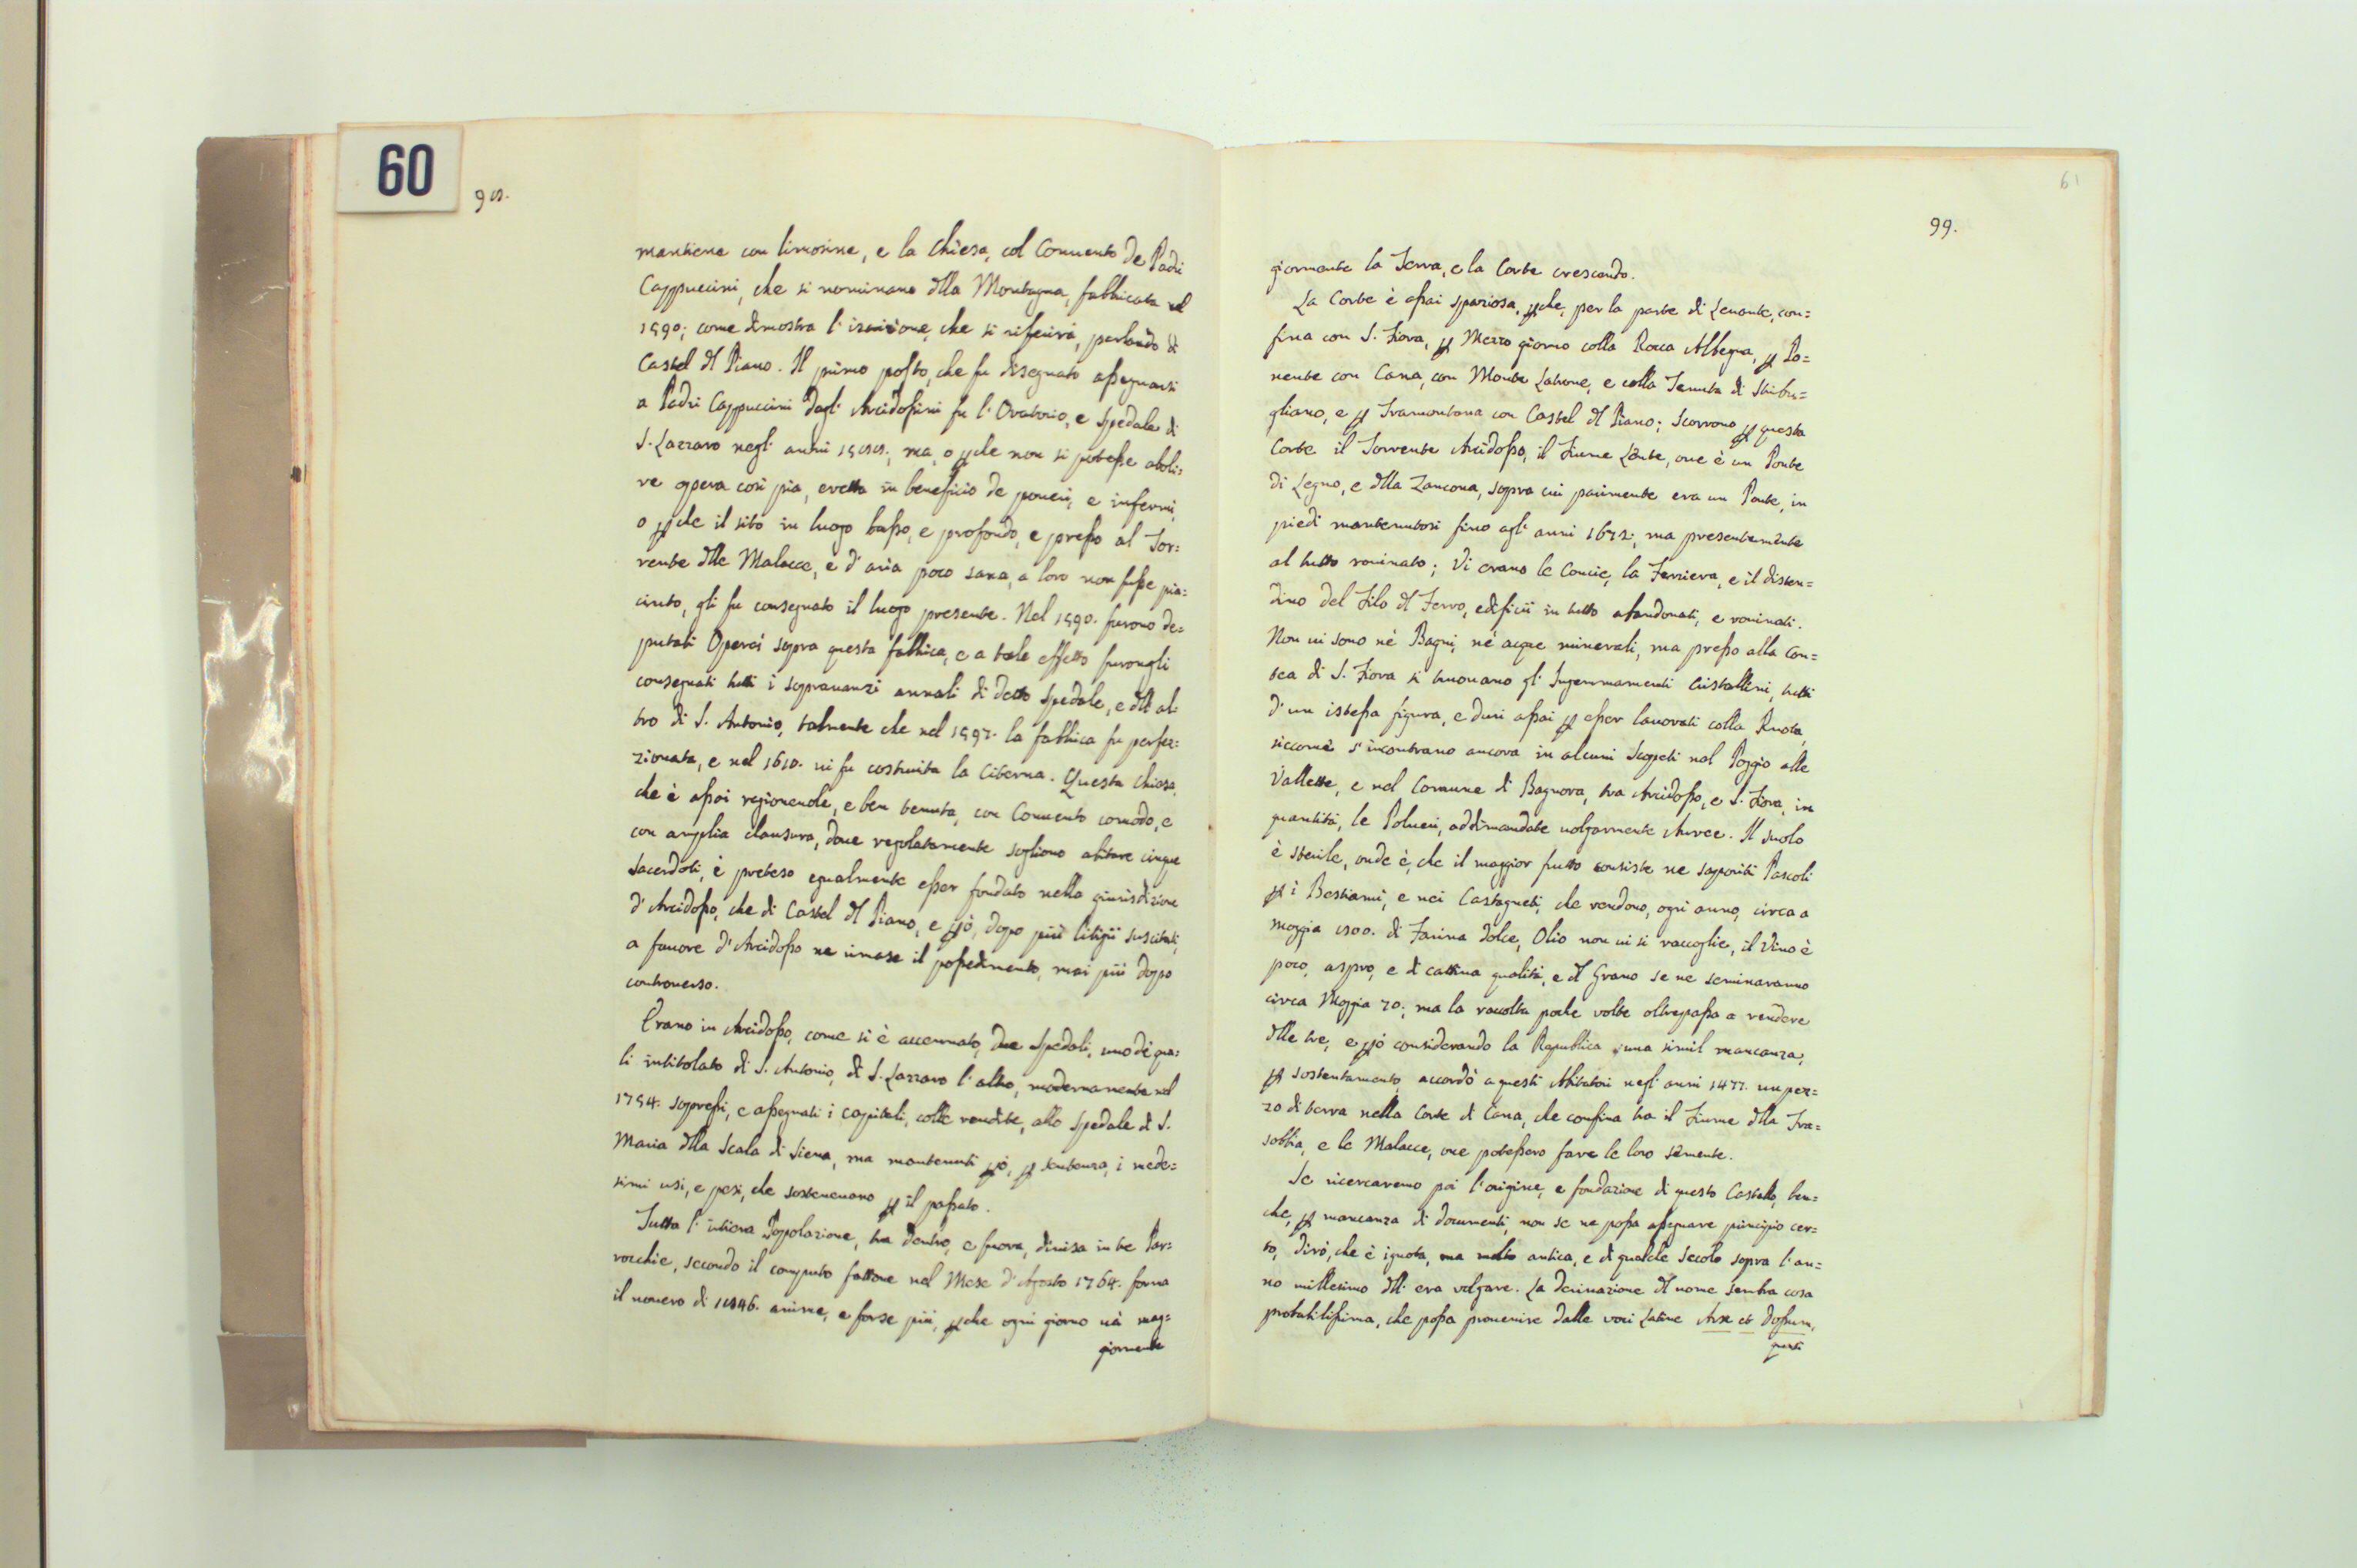 60
98.
mantiene con limosine, e la Chiesa, col Conuento de Padri
Cappuccini, che si nominano dlla Montagna, fabbricata nel
1590; come dimostra l'iscrizione, che si riferirà, parlando di
Castel dl Piano. Il primo posto, che fu disegnato assegnarsi
a Padri Cappuccini dagl' Arcidossini fu l'Oratorio, e Spedale di
S. Lazzaro negl' anni 1588; ma, o pche non si potesse aboli=
re opera così pia, eretta in beneficio de poueri, e infermi,
o pche il sito in luogo basso, e profondo, e presso al Tor=
rente dlle Malacce, e d'aria poco sana, a loro non fusse pia=
ciuto, gli fu consegnato il luogo presente. Nel 1590. furono de=
putati Operai sopra questa fabbrica, e a tale effetto furongli
consegnati tutti i soprauanzi annuali di detto Spedale, e dll al=
tro di S. Antonio, talmente che nel 1597. la fabbrica fu perfez=
zionata, e nel 1610. ui fu costruita la Citerna. Questa Chiesa,
che è assai ragioneuole, e ben tenuta, con Conuento comodo, e
con amplia clausura, doue regolatamente sogliono abitare cinque
Sacerdoti, è preteso egualmente esser fondato nella giurisdizione
d'Arcidosso, che di Castel dl Piano, e pò, dopo più litigii suscitati,
a fauore d'Arcidosso ne rimase il possedimento, mai più doppo
controuerso.
Erano in Arcidosso, come si è accennato, due Spedali, uno de qua=
li intitolato di S. Antonio, di S. Lazzaro l'altro, modernamente nel
1754. soppressi, e assegnati i capitali, colle rendite, allo Spedale di S.
Maria dlla Scala di Siena, ma mantenuti pò, p sentenza, i mede=
simi usi, e pesi, che sosteneuano p il passato.
Tutta l'intiera Popolazione, tra dentro, e fuora, diuisa in tre Par=
rocchie, secondo il computo fattone nel Mese d'Agosto 1764. forma
il nouero di 1846. anime, e forse più, pche ogni giorno uà mag=
giormente
61
99.
giormente la Terra, e la Corte crescendo.
La Corte è assai spaziosa, pche, per la parte di Leuante, con=
fina con S. Fiora, p Mezzo giorno colla Rocca Albegna, p Po=
nente con Cana, con Monte Latrone, e colla Tenuta di Stribu=
gliano, e p Tramontana con Castel dl Piano; Scorrono p questa
Corte il Torrente Arcidosso, il Fiume Lente, oue è un Ponte
di Legno, e dlla Zancona, sopra cui parimente era un Ponte, in
piedi mantenutosi fino agl' anni 1672; ma presentemente
al tutto rouinato; Vi erano le Concie, la Ferriera, e il disten=
dino del Filo dl Ferro, edificii in tutto abandonati, e rouinati.
Non ui sono nè Bagni, nè acque minerali, ma presso alla Con=
tea di S. Fiora si truouano gl' Ingemmamenti Cristallini, tutti
d'un istessa figura, e duri assai p esser lauorati colla Ruota,
siccome s'incontrano ancora in alcuni Scopeti nel Poggio alle
Vallette, e nel Comune di Bagnora, tra Arcidosso, e S. Fiora, in
quantità, le Polueri, addimandate uolgarmente Auree. Il suolo
è sterile, onde è, che il maggior frutto consiste ne saporiti Pascoli
p i Bestiami, e nei Castagneti, che rendono, ogni anno, circa a
moggia 1500. di Farina dolce, Olio non ui si raccoglie, il Vino è
poco, aspro, e di cattiua qualità, e dl Grano se ne seminaranno
circa Moggia 70; ma la raccolta poche volte oltrepassa a rendere
dlle tre; e pò considerando la Republica una simil mancanza,
p sostentamento, accordò a questi Abitatori negl' anni 1477. un pez=
zo di terra nella Corte di Cana, che confina tra il Fiume dlla Tra=
sobbia, e le Malacce, oue potessero fare le loro semente.
Se ricercaremo poi l'origine, e fondazione di questo Castello, ben=
che, p mancanza di documenti, non se ne possa assegnare principio cer=
to, dirò, che è ignota, ma molto antica, e di qualche Secolo sopra l'an=
no millesimo dll' era volgare. La deriuazione dl nome sembra cosa
probabilissima, che possa prouenire dalle voci Latine Arx et Dossum,
questi